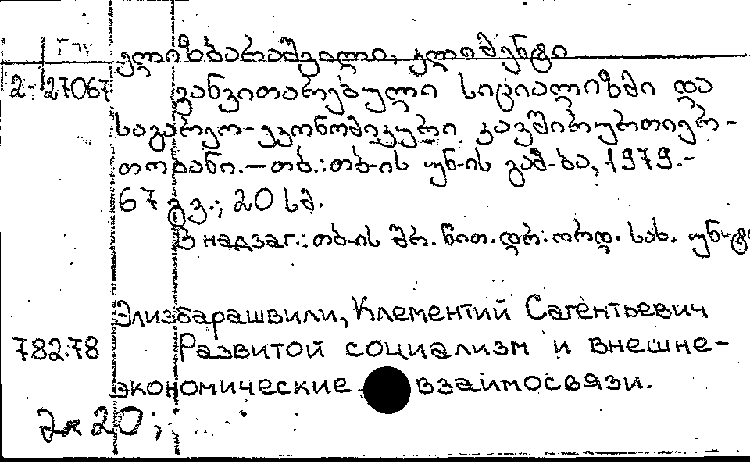 Гпу
ელიზბარაშვილი, კლიმენტი
2-27067
განვითარებული სოციალიზმი და
საგარეო-ეკონომიკური კავშირურთიერ-
თობანი.—თბ.:თბ-ის უნ-ის გამ-ბა, 1979.-
67 გვ.; 20 სმ.
В надзаг.: თბ-ის შრ. წით. დრ. ორდ. სახ. უნ-ტი
Элизбарашвили, Клементий Сагентьевич
782.78 Развитой социализм и внешне-
экономические взаимосвязи.
20;